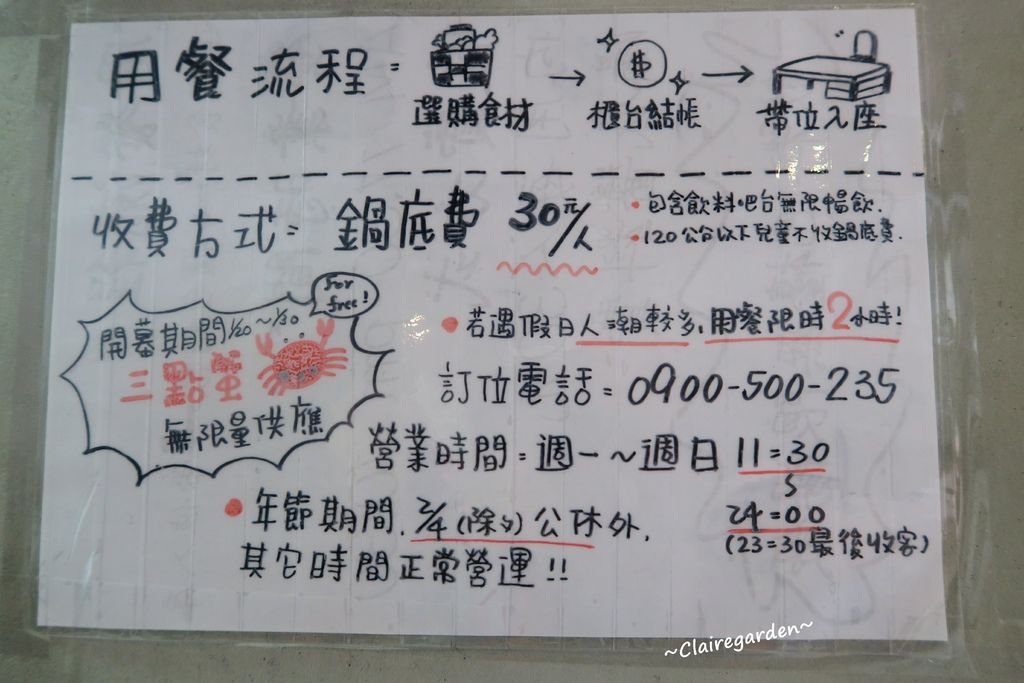 用餐流程:
選購食材 → 櫃台結帳 → 帶位入座
收費方式: 鍋底費 30元/人
• 包含飲料吧台無限暢飲.
• 120公分以下兒童不收鍋底費.
for free!
開幕期間1/20~1/30
三點蟹
無限量供應
• 若遇假日人潮較多,用餐限時2小時!
訂位電話:0900-500-235
營業時間:週一~週日 11:30
24:00
(23:30最後收客)
• 年節期間,2/4(除夕)公休外,
其它時間正常營運!!
~Clairegarden~